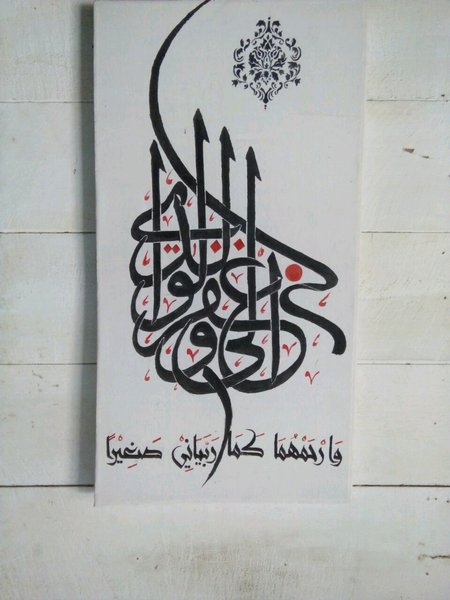 اغفر لي ولوالدي
وَارْحَمْهُمَا كَمَا رَبَيَانِيْ صَغِيْرًا